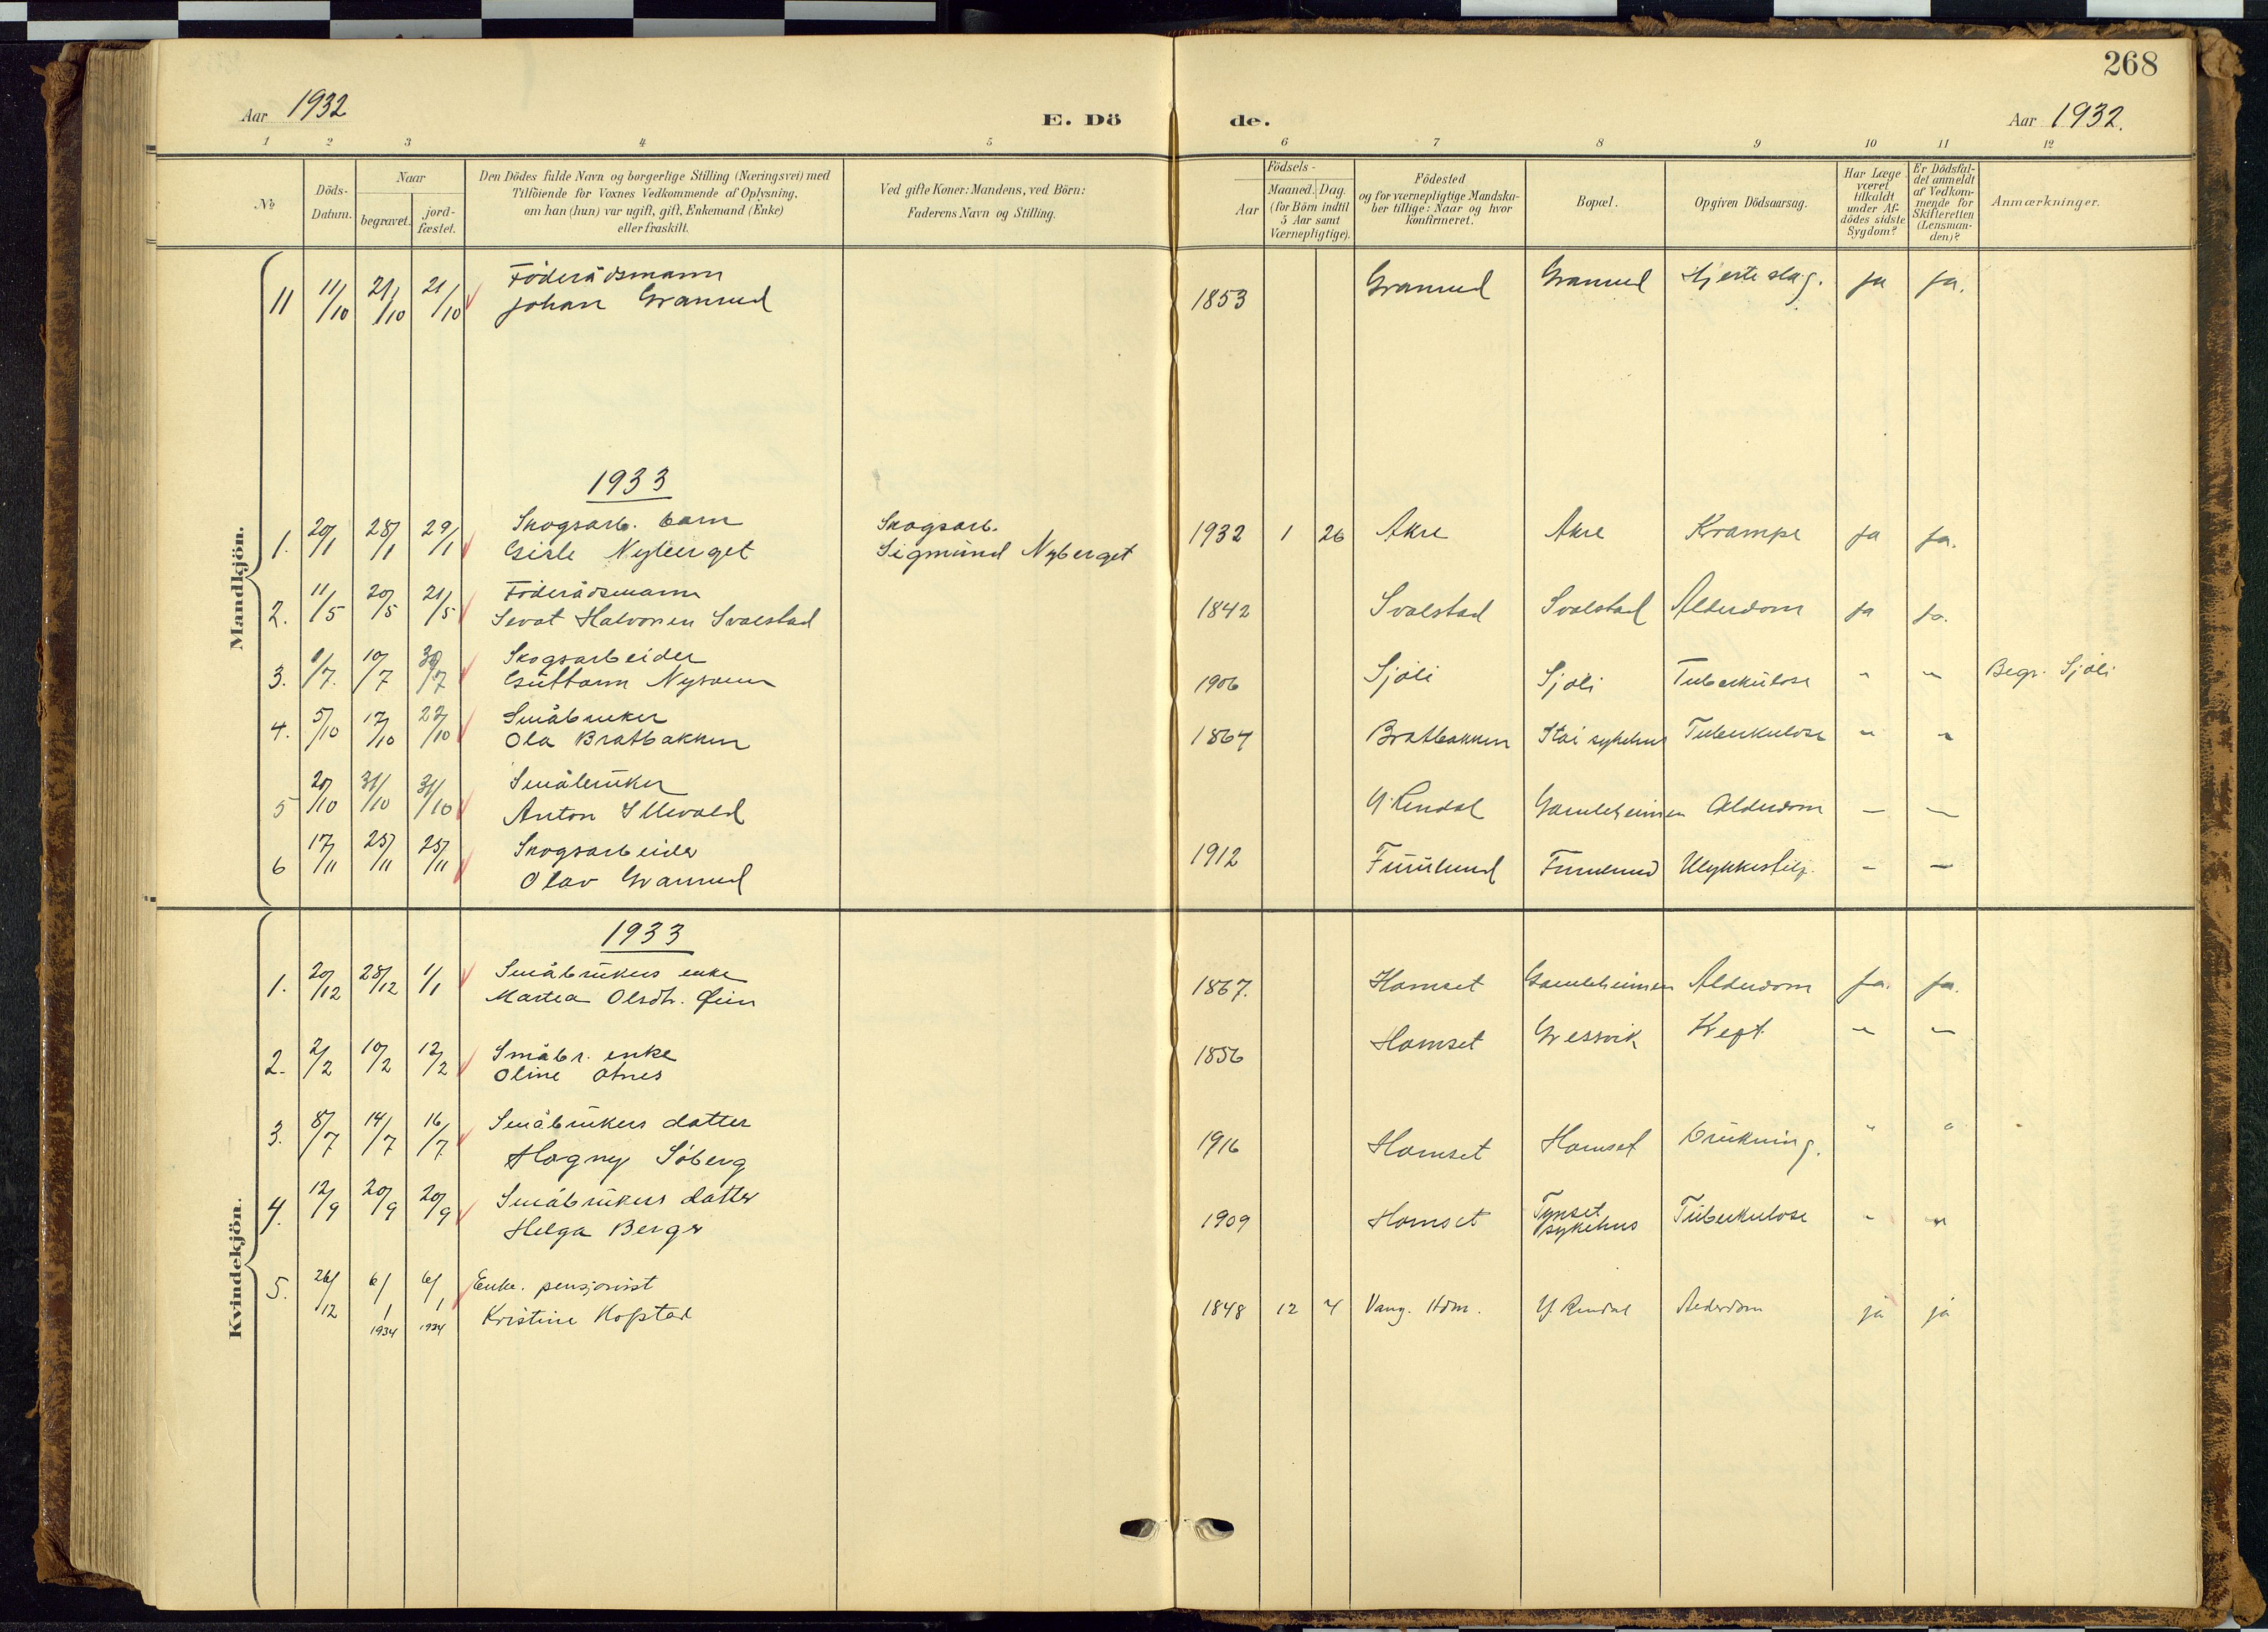 268
Aar 1932
E. Döde.
Aar 1932.
1 2 3 4 5 6 7 8 9 10 11 12
No
Döds-Datum.
Naar
begravet.
jord-fæstet.
Den Dödes fulde Navn og borgerlige Stilling (Næringsvei) med
Tilföiende for Voxnes Vedkommende af Oplysning,
om han (hun) var ugift, gift, Enkemand (Enke)
eller fraskilt.
Ved gifte Koner: Mandens, ved Börn:
Faderens Navn og Stilling.
Födsels-
Aar
Maaned. Dag.
(for Börn indtil
5 Aar samt
Værnepligtige).
Födested
og for værnepligtige Mandska-
ber tillige: Naar og hvor
konfirmeret.
Bopæl.
Opgiven Dödsaarsag.
Har Læge
været
tilkaldt
under Af-
dödes sidste
Sygdom?
Er Dödsfal-
det anmeldt
af Vedkom-
mende for
Skifteretten
(Lensman-
den)?
Anmærkninger.
Mandkjön.
11 11/10 21/10 21/10 Föderådsmann
Johan Granrud 1853 Granrud Granrud Hjerteslag. ja ja.
1933
1. 20/1 28/1 29/1 Skogsarb. barn Skogsarb.
Gisle Nyberget Sigmund Nyberget 1932 1 26 Akre Akre Krampe ja ja.
2. 11/5 20/5 21/5 Föderådsmann
Sevat Halvorsen Svalstad 1842 Svalstad Svalstad Alderdom ja ja.
3. 1/7. 10/7 30/7 Skogsarbeider
Guttorm 1906 Sjöli Sjöli Tuberkulose " " Begr. Sjöli
4. 5/10 17/10 22/10 Småbruker
Ola Bratbakken 1864 Bratbakken Stai sykehus Tuberkulose " "
5 20/10 31/10 31/10 Småbruker
Anton Y. Rendal Gamleheimen Alderdom — —
6 17/11 25/11 25/11 Skogsarbeider
Olav Granrud 1912 Furulund Furulund — —
Kvindekjön.
1933
1. 20/12 28/12 1/1 Småbrukers enke
Martea Olsdtr. 1867. Hamset Gamleheimen Alderdom ja. ja.
2. 2/2 10/2 12/2 Småbr. enke
Oline Otnes 1856 Hamset Gressvik Kreft " "
3. 8/7 14/7 16/7 Småbrukers datter
Hagny Söberg 1916 Hamset Hamset Drukning. " "
4. 12/9 20/9 20/9 Småbrukers datter
Helga Berger 1909 Hamset Tynset sykehus Tuberkulose " "
5. 26/12 6/1 1934 6/1 1934 Enke. pensjonist
Kristine Hofstad 1848 12 4 Vang. Hdm. Y. Rendal Alderdom ja ja